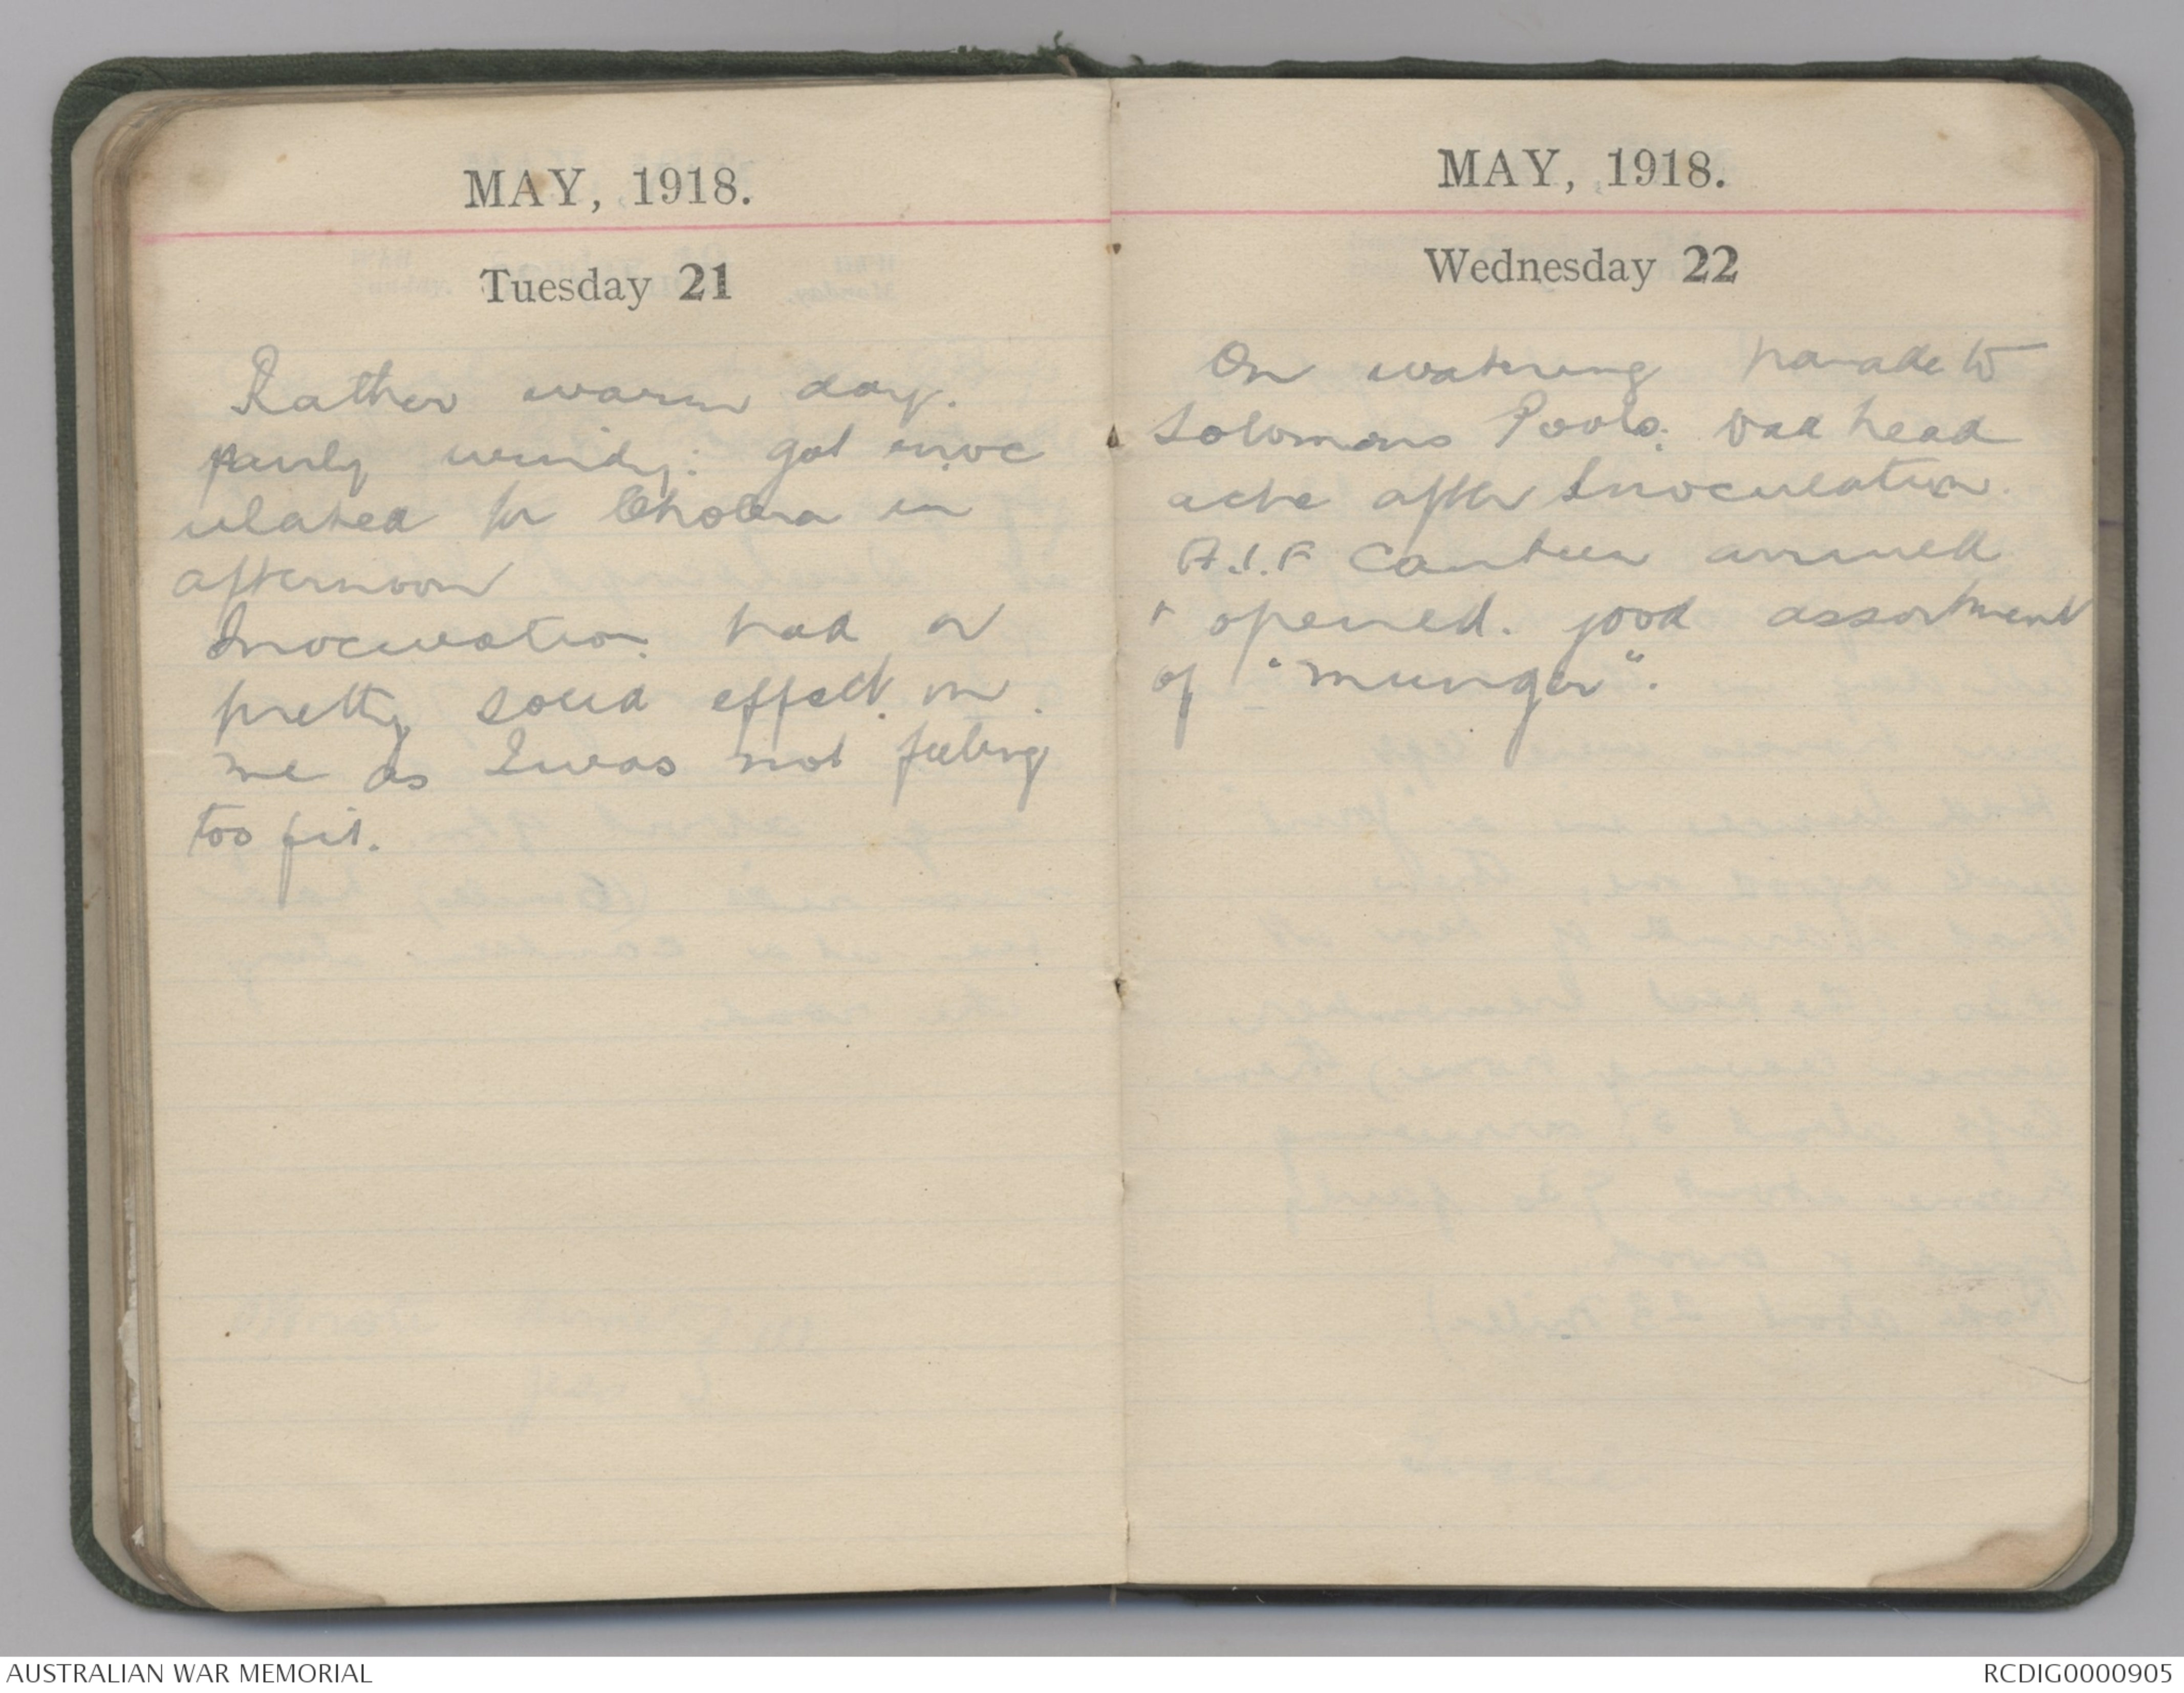 MAY, 1918.
Tuesday 21
Rather warm day.
windy: got inoc
ulated for Cholera in
afternoon
Inoculation had a
pretty solid effect on
me as I was not feeling
too fit.
MAY, 1918.
Wednesday 22
On watering parade to
Solomons Pools. Bad head
ache after Inoculation.
A.I.F Canteen arrived
+ opened. good assortment
of "munger".
AUSTRALIAN WAR MEMORIAL
RCDIG0000905